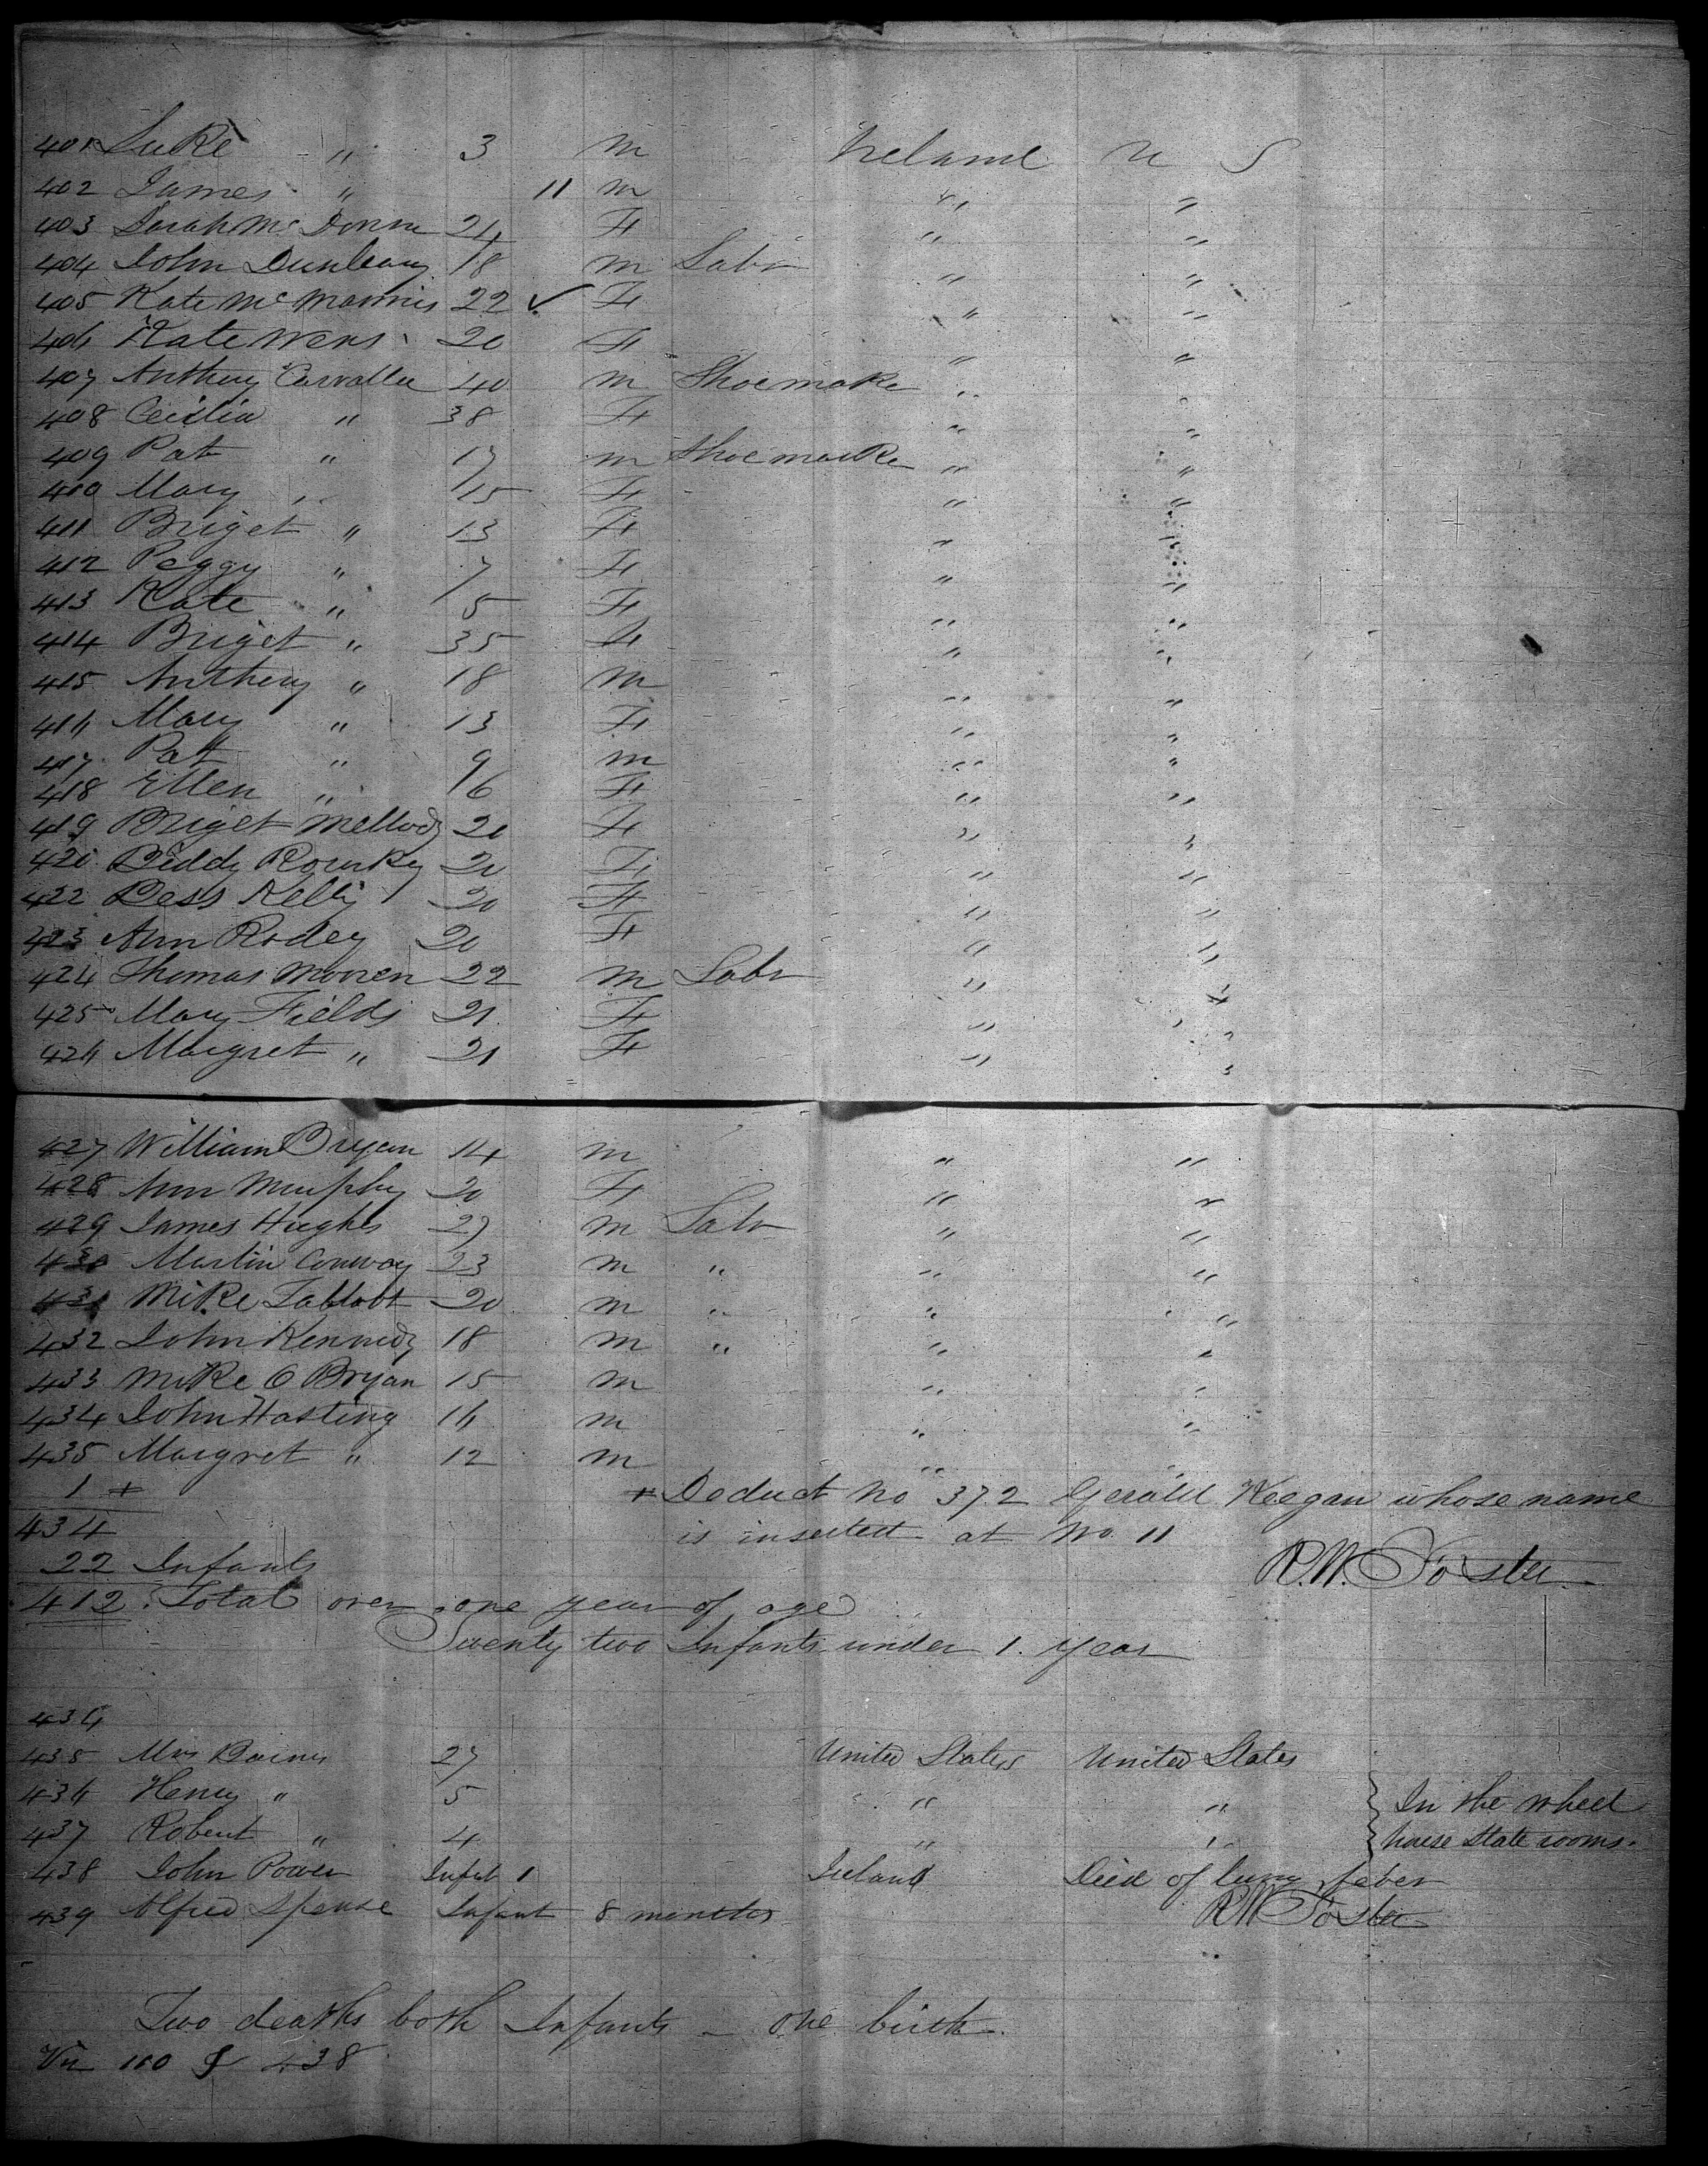 401 Luke " 3 M Ireland U S
402 James " 11 M " "
403 Sarah Mc Donna 24 F " "
404 John Dunleavy 18 M Labr " "
405 Kate Mc Mannis 22 ✓ F " "
406 Kate Wens 20 F " "
407 Anthony Carvallee 40 M Shoemake " "
408 Cecilia " 38 F " "
409 Pat " 17 M Shoemake " "
410 Mary " 15 F " "
411 Briget " 13 F " "
412 Peggy " 7 F " "
413 Kate " 5 F " "
414 Briget " 35 F " "
415 Anthony " 18 M " "
416 Mary " 13 F " "
417 Patt " 9 M " "
418 Ellen " 16 F " "
419 Briget Mellody 20 F " "
420 Biddy Rourky 20 F " "
422 Bess Kelly 20 F " "
423 Ann Rodey 20 F " "
424 Thomas Morren 22 M Labr " "
425 Mary Fields 21 F " "
426 Margret " 21 F " "
427 William Bryan 14 M " "
428 Ann Murphy 20 F " "
429 James Hughes 27 M Labr " "
430 Martin Conway 23 M " " "
431 Mike Tablott 20 M " " "
432 John Kennedy 18 M " " "
433 Mike O Bryan 15 M " "
434 John Hasting 16 M " "
435 Margret " 12 M " "
1 + + Deduct No 372 Gerald Keegan whose name
434 is inserted at No. 11
22 Infants R.W. Foster
412. Total over one year of age
Twenty two Infants under 1. year
434
435 Mrs Baines 27 United States United States
436 Henry " 5 " " } In the wheel
437 Robert " 4 " " } house State rooms.
438 John Power Infnt 1 Ireland Died of lung fever
439 Alfred Spense Infant 8 months R W Foster
Two deaths both Infants - one birth.
Viz 110 & 438